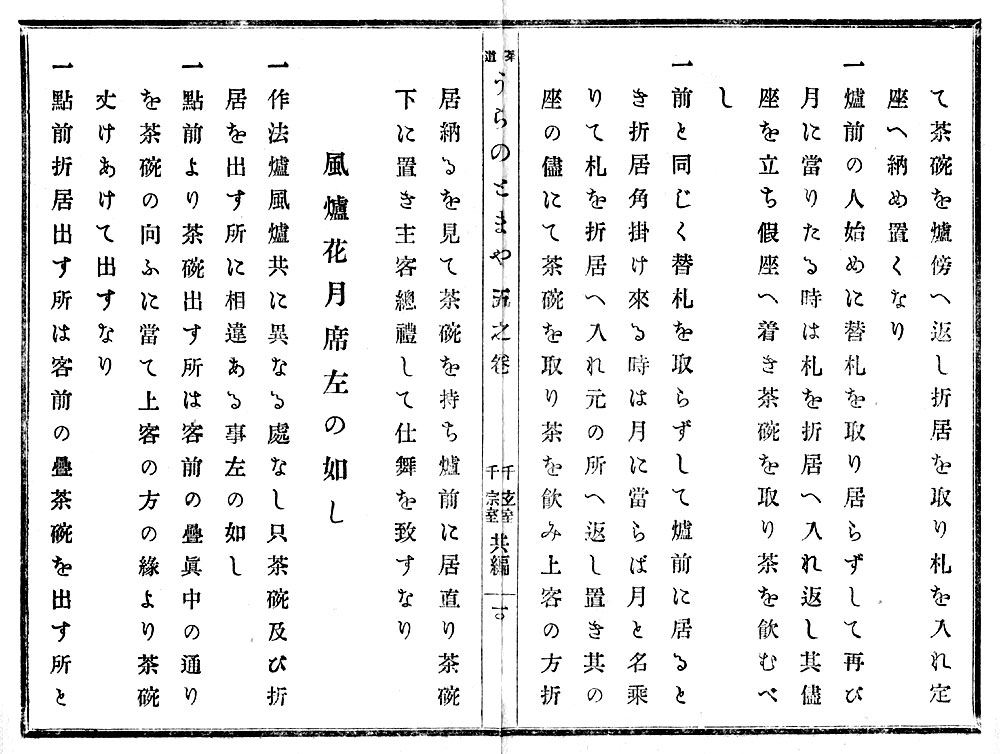 て茶碗を爐傍へ返し折居を取り札を入れ定
座へ納め置くなり
一爐前の人始めに替札を取り居らずして再び
月に當りたる時は札を折居へ入れ返し其儘
座を立ち假座へ着き茶碗を取り茶を飮むべ
し
一前と同じく替札を取らずして爐前に居ると
き折居角掛け來る時は月に當らば月と名乘
りて札を折居へ入れ元の所へ返し置き其の
座の儘にて茶碗を取り茶を飮み上客の方折
茶道
うらのとまや 五之卷
千玄室
千宗室
共編
居納るを見て茶碗を持ち爐前に居直り茶碗
下に置き主客總禮して仕舞を致すなり
風爐花月席左の如し
一作法爐風爐共に異なる處なし只茶碗及び折
居を出す所に相違ある事左の如し
一點前より茶碗出す所は客前の疊眞中の通り
を茶碗の向ふに當て上客の方の緣より茶碗
丈けあけて出すなり
一點前折居出す所は客前の疊茶碗を出す所と